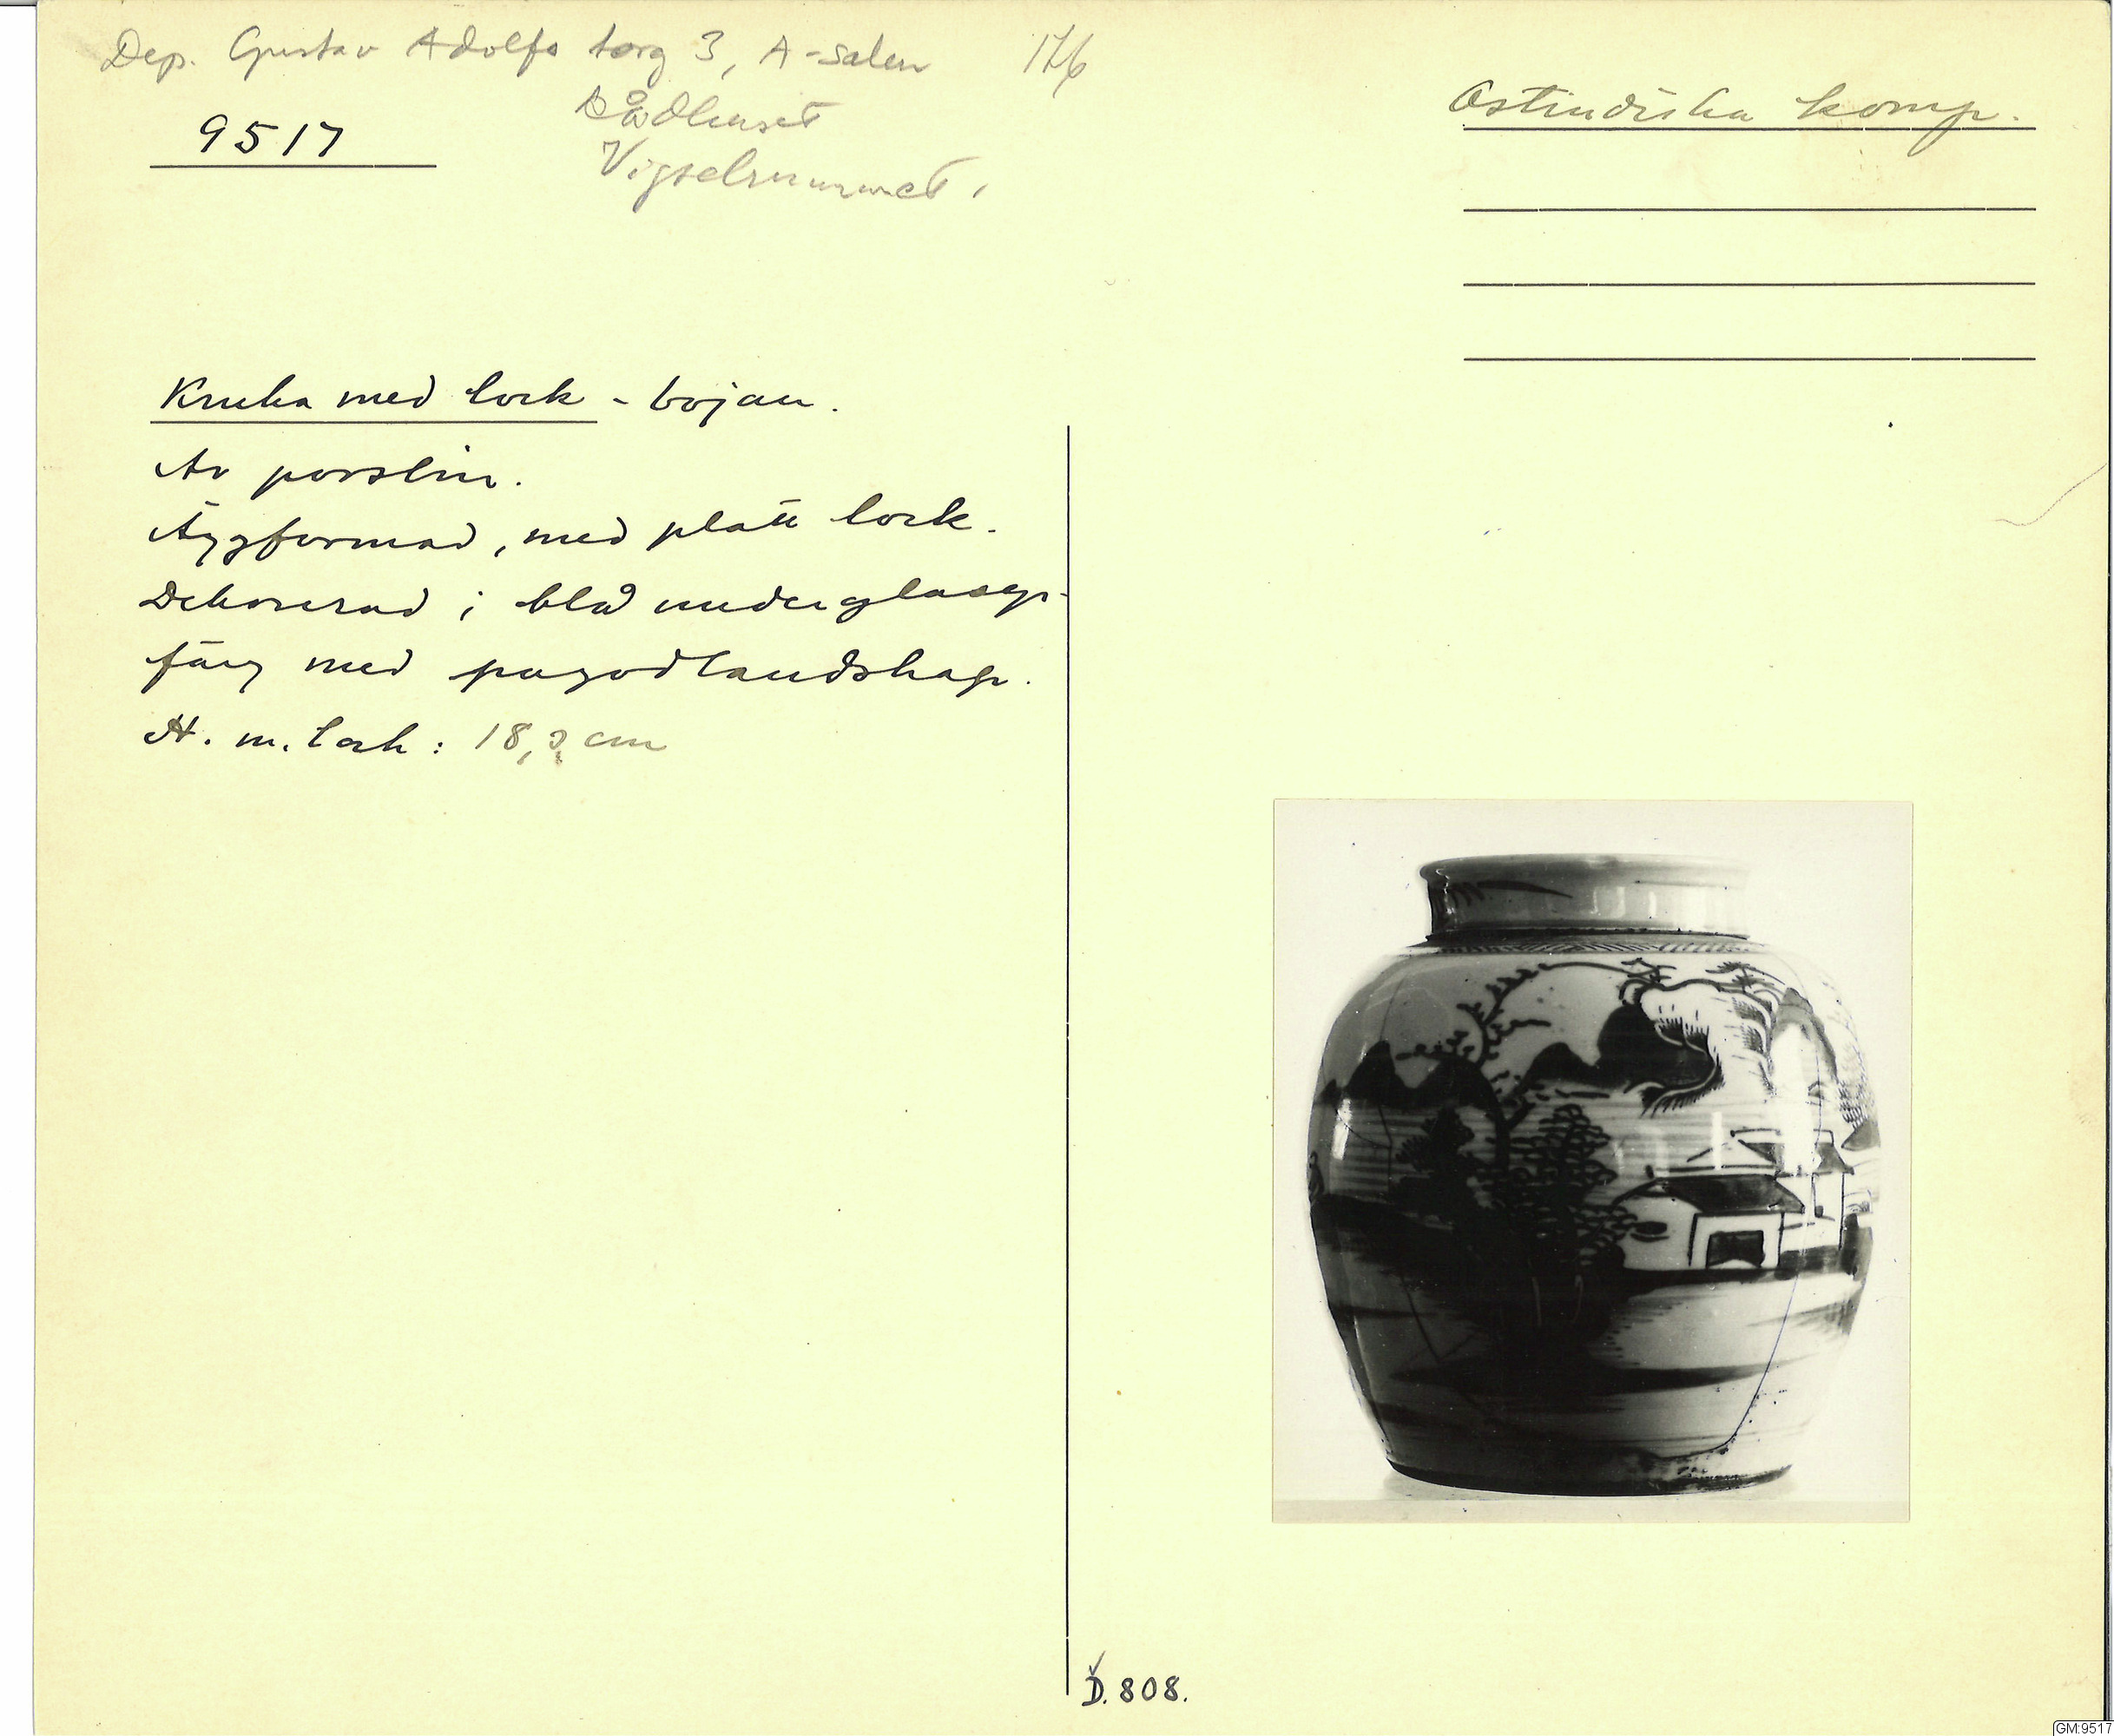 Dep. Gustav Adolfs torg 3, A-salen
Rådhuset
Vigselrummet.
9517
Ostindiska komp.
Kruka med lock - bojan.
Av porslin.
Äggformad, med platt lock.
Dekorerad i blå underglasyr-
färg med pagodlandskap.
H. m. lock: 18, cm
D. 808.
GM:9517